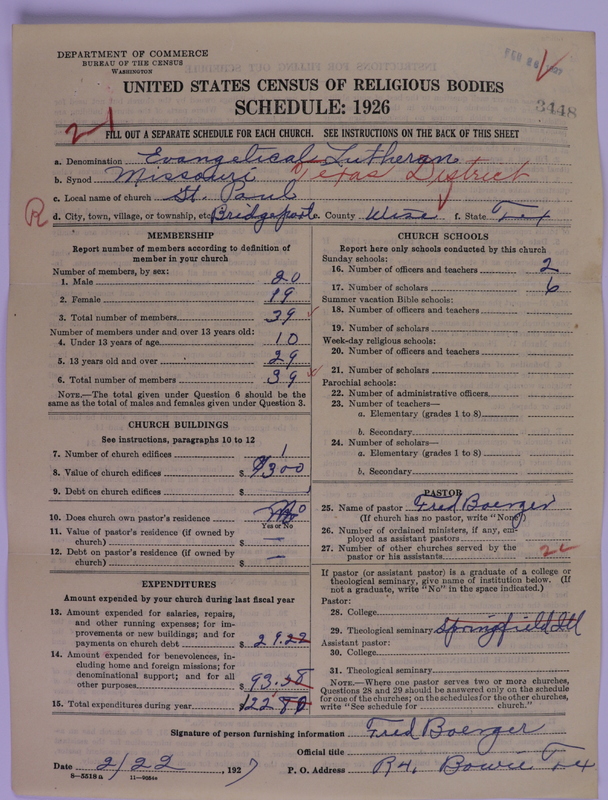 DEPARTMENT OF COMMERCE
BUREAU OF THE CENSUS
WASHINGTON
3448
UNITED STATES CENSUS OF RELIGIOUS BODIES
SCHEDULE: 1926
FILL OUT A SEPARATE SCHEDULE FOR EACH CHURCH. SEE INSTRUCTIONS ON THE BACK OF THIS SHEET
a. Denomination Evangelical Lutheran
b. Synod Missouri Texas District
c. Local name of church St. Paul
R
d. City, town, village, or township, etc. Bridgeport e. County Wise f. State Tex
MEMBERSHIP
Report number of members according to definition of
member in your church
Number of members, by sex:
1. Male 20
2. Female 19
3. Total number of members 39
Number of members under and over 13 years old:
4. Under 13 years of age 10
5. 13 years old and over 29
6. Total number of members 39
NOTE.—The total given under Question 6 should be the
same as the total of males and females given under Question 3.
CHURCH BUILDINGS
See instructions, paragraphs 10 to 12
7. Number of church edifices 1
8. Value of church edifices $ 9300
9. Debt on church edifices $
10. Does church own pastor's residence No
Yes or No
11. Value of pastor's residence (if owned by
church) $ —
12. Debt on pastor's residence (if owned by
church) $ —
EXPENDITURES
Amount expended by your church during last fiscal year
13. Amount expended for salaries, repairs,
and other running expenses; for im-
provements or new buildings; and for
payments on church debt $ 29.22
14. Amount expended for benevolences, in-
cluding home and foreign missions; for
denominational support; and for all
other purposes $ 93.58
15. Total expenditures during year $122 80
CHURCH SCHOOLS
Report here only schools conducted by this church
Sunday schools:
16. Number of officers and teachers 2
17. Number of scholars 6
Summer vacation Bible schools:
18. Number of officers and teachers
19. Number of scholars
Week-day religious schools:
20. Number of officers and teachers
21. Number of scholars
Parochial schools:
22. Number of administrative officers
23. Number of teachers—
a. Elementary (grades 1 to 8)
b. Secondary
24. Number of scholars—
a. Elementary (grades 1 to 8)
b. Secondary
PASTOR
25. Name of pastor Fred Boerger
(If church has no pastor, write "None")
26. Number of ordained ministers, if any, em-
ployed as assistant pastors
27. Number of other churches served by the
pastor or his assistants
If pastor (or assistant pastor) is a graduate of a college or
theological seminary, give name of institution below. (If
not a graduate, write "No" in the space indicated.)
Pastor:
28. College
29. Theological seminary Springfield Ill
Assistant pastor:
30. College
31. Theological seminary
NOTE.—Where one pastor serves two or more churches,
Questions 28 and 29 should be answered only on the schedule
for one of the churches; on the schedules for the other churches,
write "See schedule for church."
Signature of person furnishing information Fred Boerger
Official title
Date 2/22, 1927 P. O. Address R4. Bowie Tex
8—5518a 11—